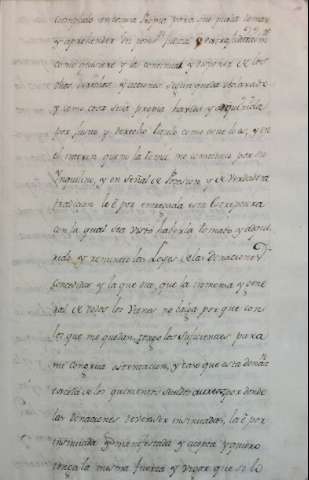 cumplido en forma para que pueda tomar
y aprehender su poss.on judicial o extrajudicialm.te
como quisiere y a continuar y disponer de los
dhos derechos y acciones segun queda declarado
y como cosa suya propia havida y adquirida
por justo y derecho titulo como este lo es, y en
el interin que no la toma me constituyo por su
Ynquilino, y en señal de posesion y de verdadera
tradicion le é por entregada esta Escriptura
con la qual sea visto haberla tomado y adqui
rido, y renuncio las Leyes de las Donaciones
y la que dice, que la inmensa y gene
ral de todos los vienes no valga por que con
los que me quedan tengo los suficientes para
mi congrua sustentacion, y caso que esta donac.on
exceda de los quinientos sueldos aureos por donde
las donaciones deven ser insinuadas, la é por
insinuada y manifestada y cierta y quiero
tenga la misma fuerza y vigor que si lo